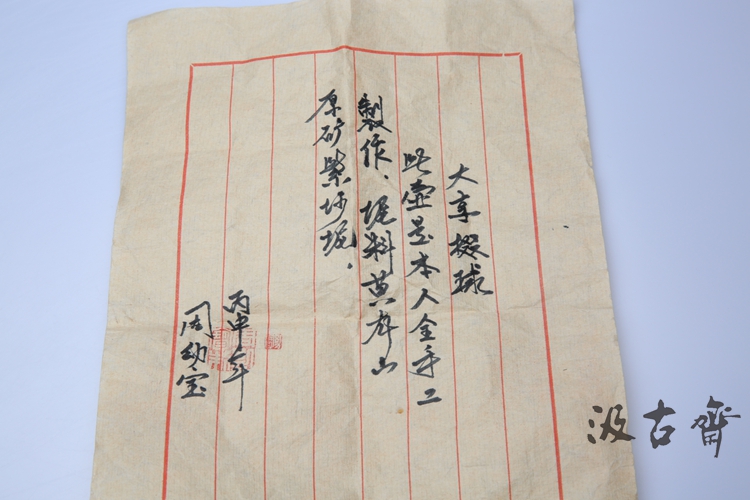 大享掇球
此壶是本人全手工
製作、坭料黄龙山
原矿紫砂坭、
丙申年
周幼宝
汲古齋